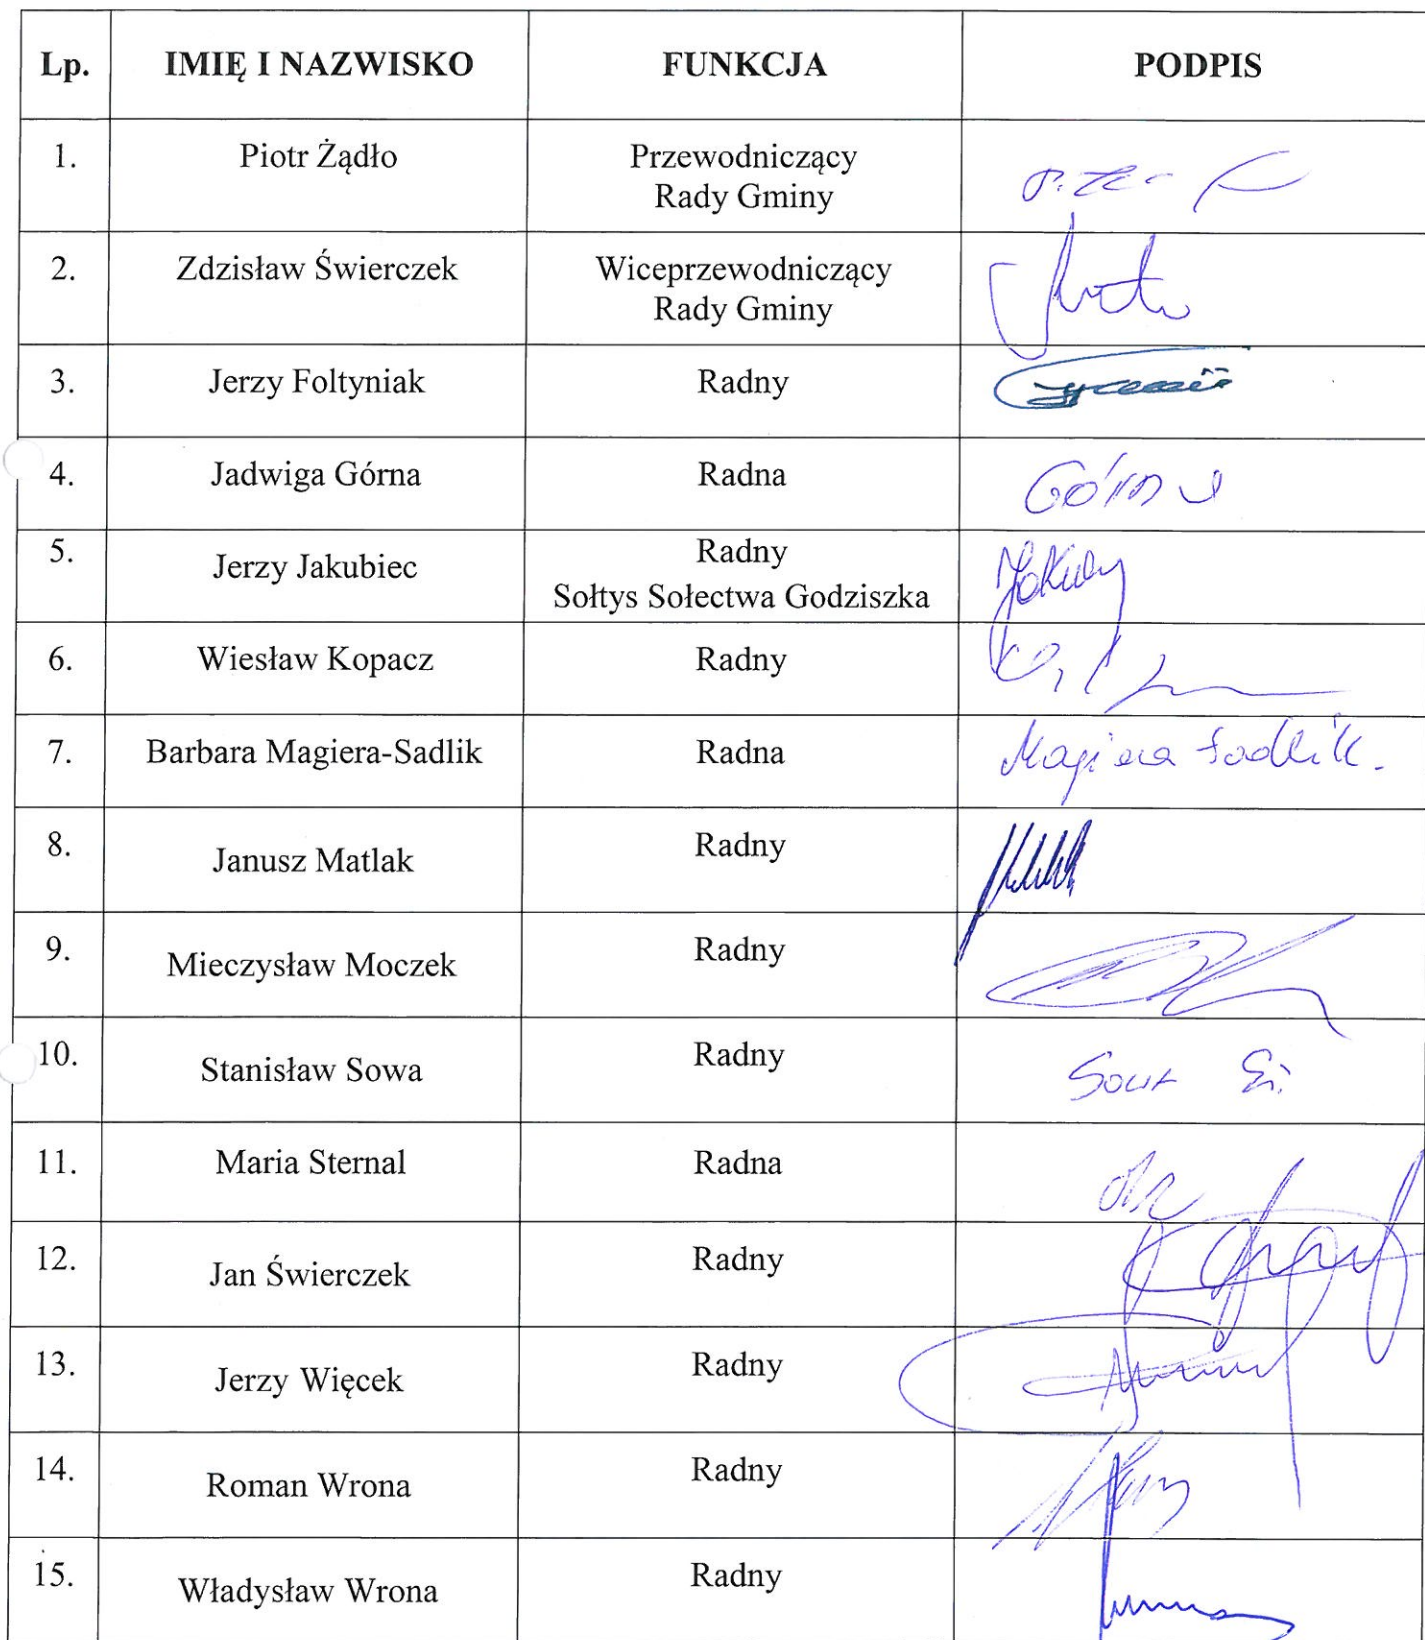 Lp. IMIĘ I NAZWISKO FUNKCJA PODPIS
1. Piotr Żądło Przewodniczący
Rady Gminy
2. Zdzisław Świerczek Wiceprzewodniczący
Rady Gminy
3. Jerzy Foltyniak Radny
4. Jadwiga Górna Radna Górna
5. Jerzy Jakubiec Radny
Sołtys Sołectwa Godziszka
6. Wiesław Kopacz Radny
7. Barbara Magiera-Sadlik Radna Magiera Sadlik.
8. Janusz Matlak Radny
9. Mieczysław Moczek Radny
10. Stanisław Sowa Radny Sowa St.
11. Maria Sternal Radna
12. Jan Świerczek Radny
13. Jerzy Więcek Radny
14. Roman Wrona Radny
15. Władysław Wrona Radny